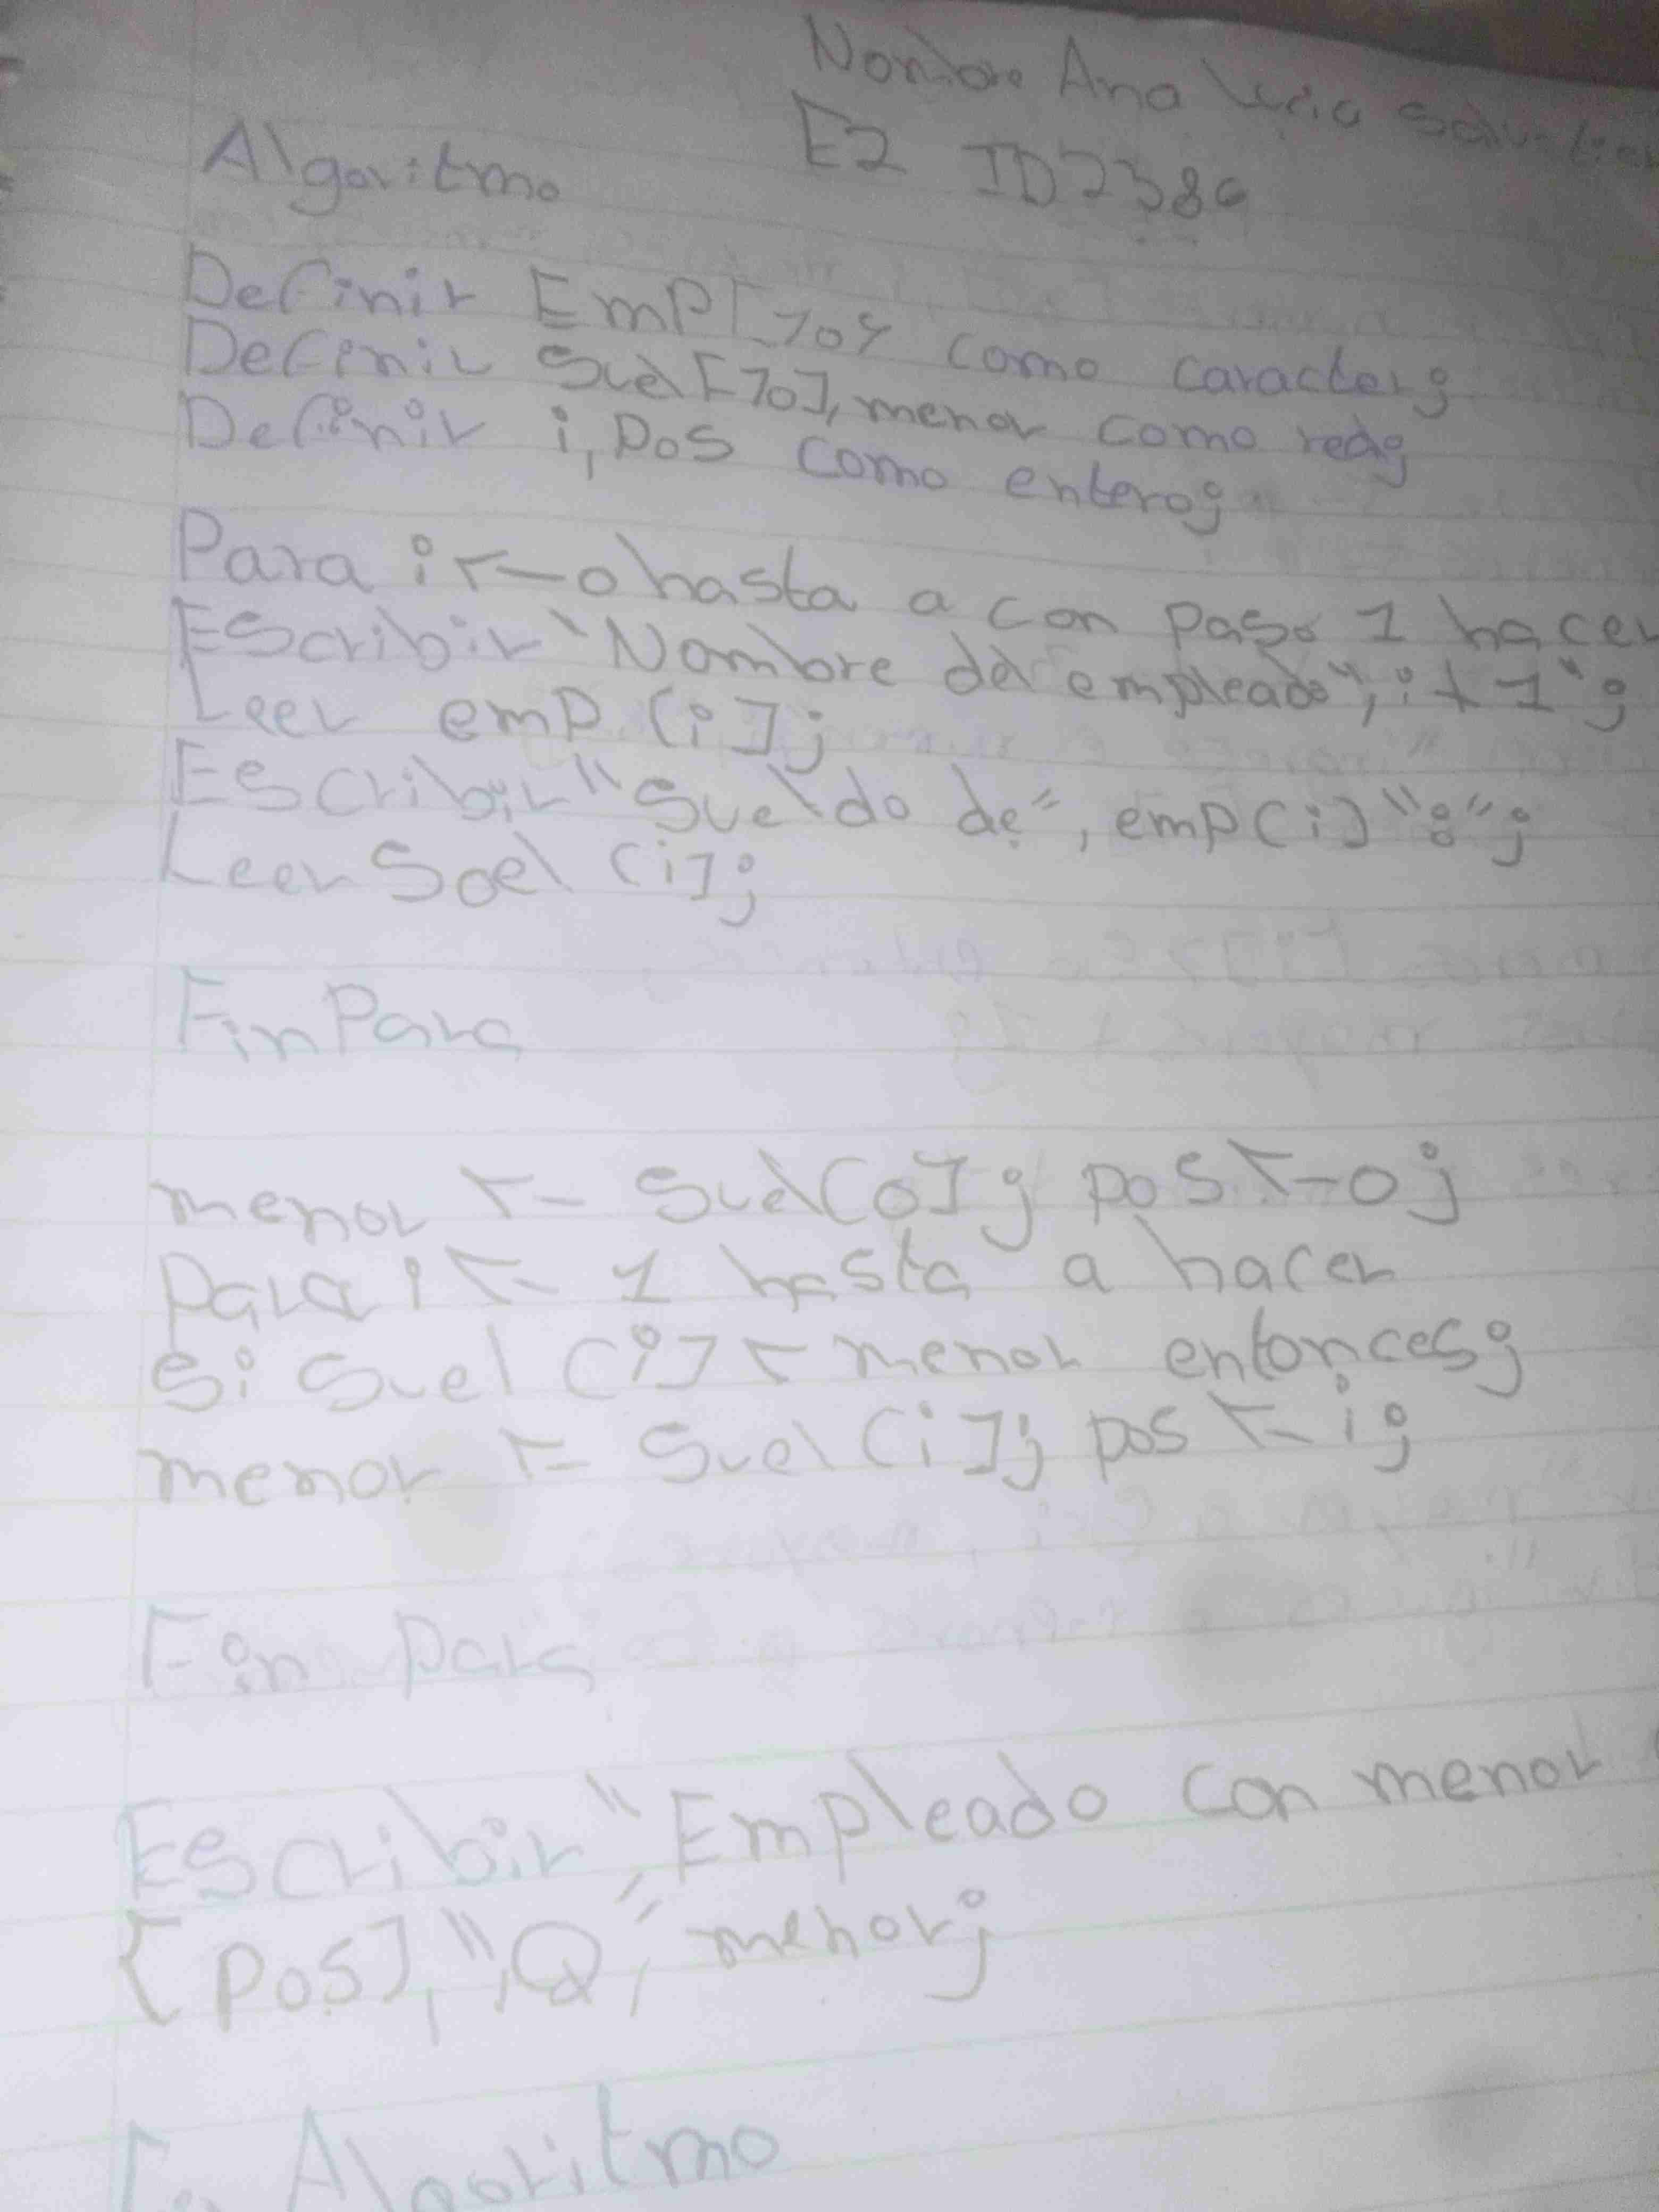 Nombre Ana Lucia
E2 ID2386
Algoritmo
Definir Emp[10] como caracter;
Definir Suel[10], menor como real;
Definir i, pos como entero;
Para i <- 0 hasta a con paso 1 hacer
Escribir "Nombre del empleado", i + 1";
Leer emp [i];
Escribir "Sueldo de", emp[i] ":";
Leer Suel [i];
Fin Para
menor <- Suel[0]; pos <- 0;
Para i <- 1 hasta a hacer
Si Suel [i] < menor entonces;
menor <- Suel [i]; pos <- i;
Fin Para
Escribir "Empleado con menor
[pos], ", Q", menor;
Fin Algoritmo